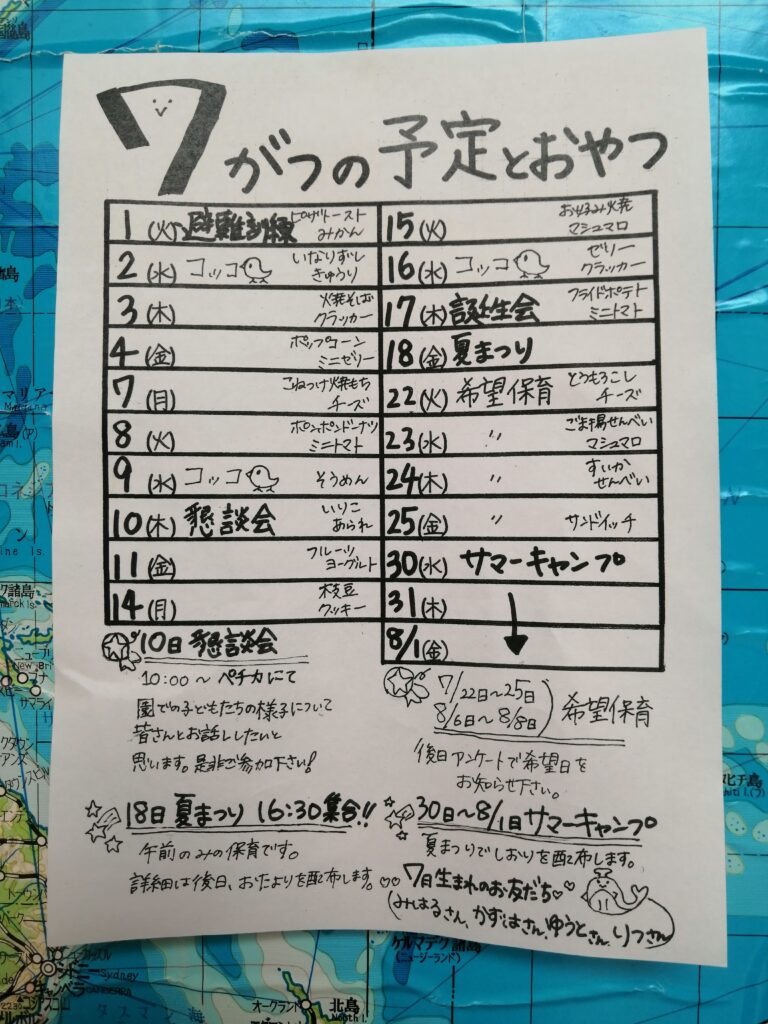 7がつの予定とおやつ
1(火) 避難訓練 ピザトースト
みかん
2(水) コッコ いなりずし
きゅうり
3(木) 火発そば
クラッカー
4(金) ポップコーン
ミニゼリー
7(月) こねつけ火発もち
チーズ
8(火) ポンポンドーナツ
ミニトマト
9(水) コッコ そうめん
10(木) 懇談会 いりこ
あられ
11(金) フルーツ
ヨーグルト
14(月) 枝豆
クッキー
15(火)
マシュマロ
16(水) コッコ ゼリー
クラッカー
17(木) 誕生会 フライドポテト
ミニトマト
18(金) 夏まつり
22(火) 希望保育 とうもろこし
チーズ
23(水) 〃 ごま揚せんべい
マシュマロ
24(木) 〃 すいか
せんべい
25(金) 〃 サンドイッチ
30(水) サマーキャンプ
31(木)
8/1(金)
10日 懇談会
10:00〜ペチカにて
園での子どもたちの様子について
皆さんとお話ししたいと
思います。是非ご参加下さい!
18日 夏まつり 16:30集合!!
午前のみの保育です。
詳細は後日、おたよりを配布します。
7/22日〜25日
8/6日〜8/8日) 希望保育
後日アンケートで希望日を
お知らせ下さい。
30日〜8/1日サマーキャンプ
夏まつりでしおりを配布します。
♡♡7日生まれのお友だち♡♡
(みはるさん、かずはさん、ゆうとさん、りつさん
マリアナ
ケルマデク諸島
(ニュージーランド)
シドニー
Sydney
キャンベラ
CANBERRA
メルボルン
タスマン海
オークランド
北島
North I.